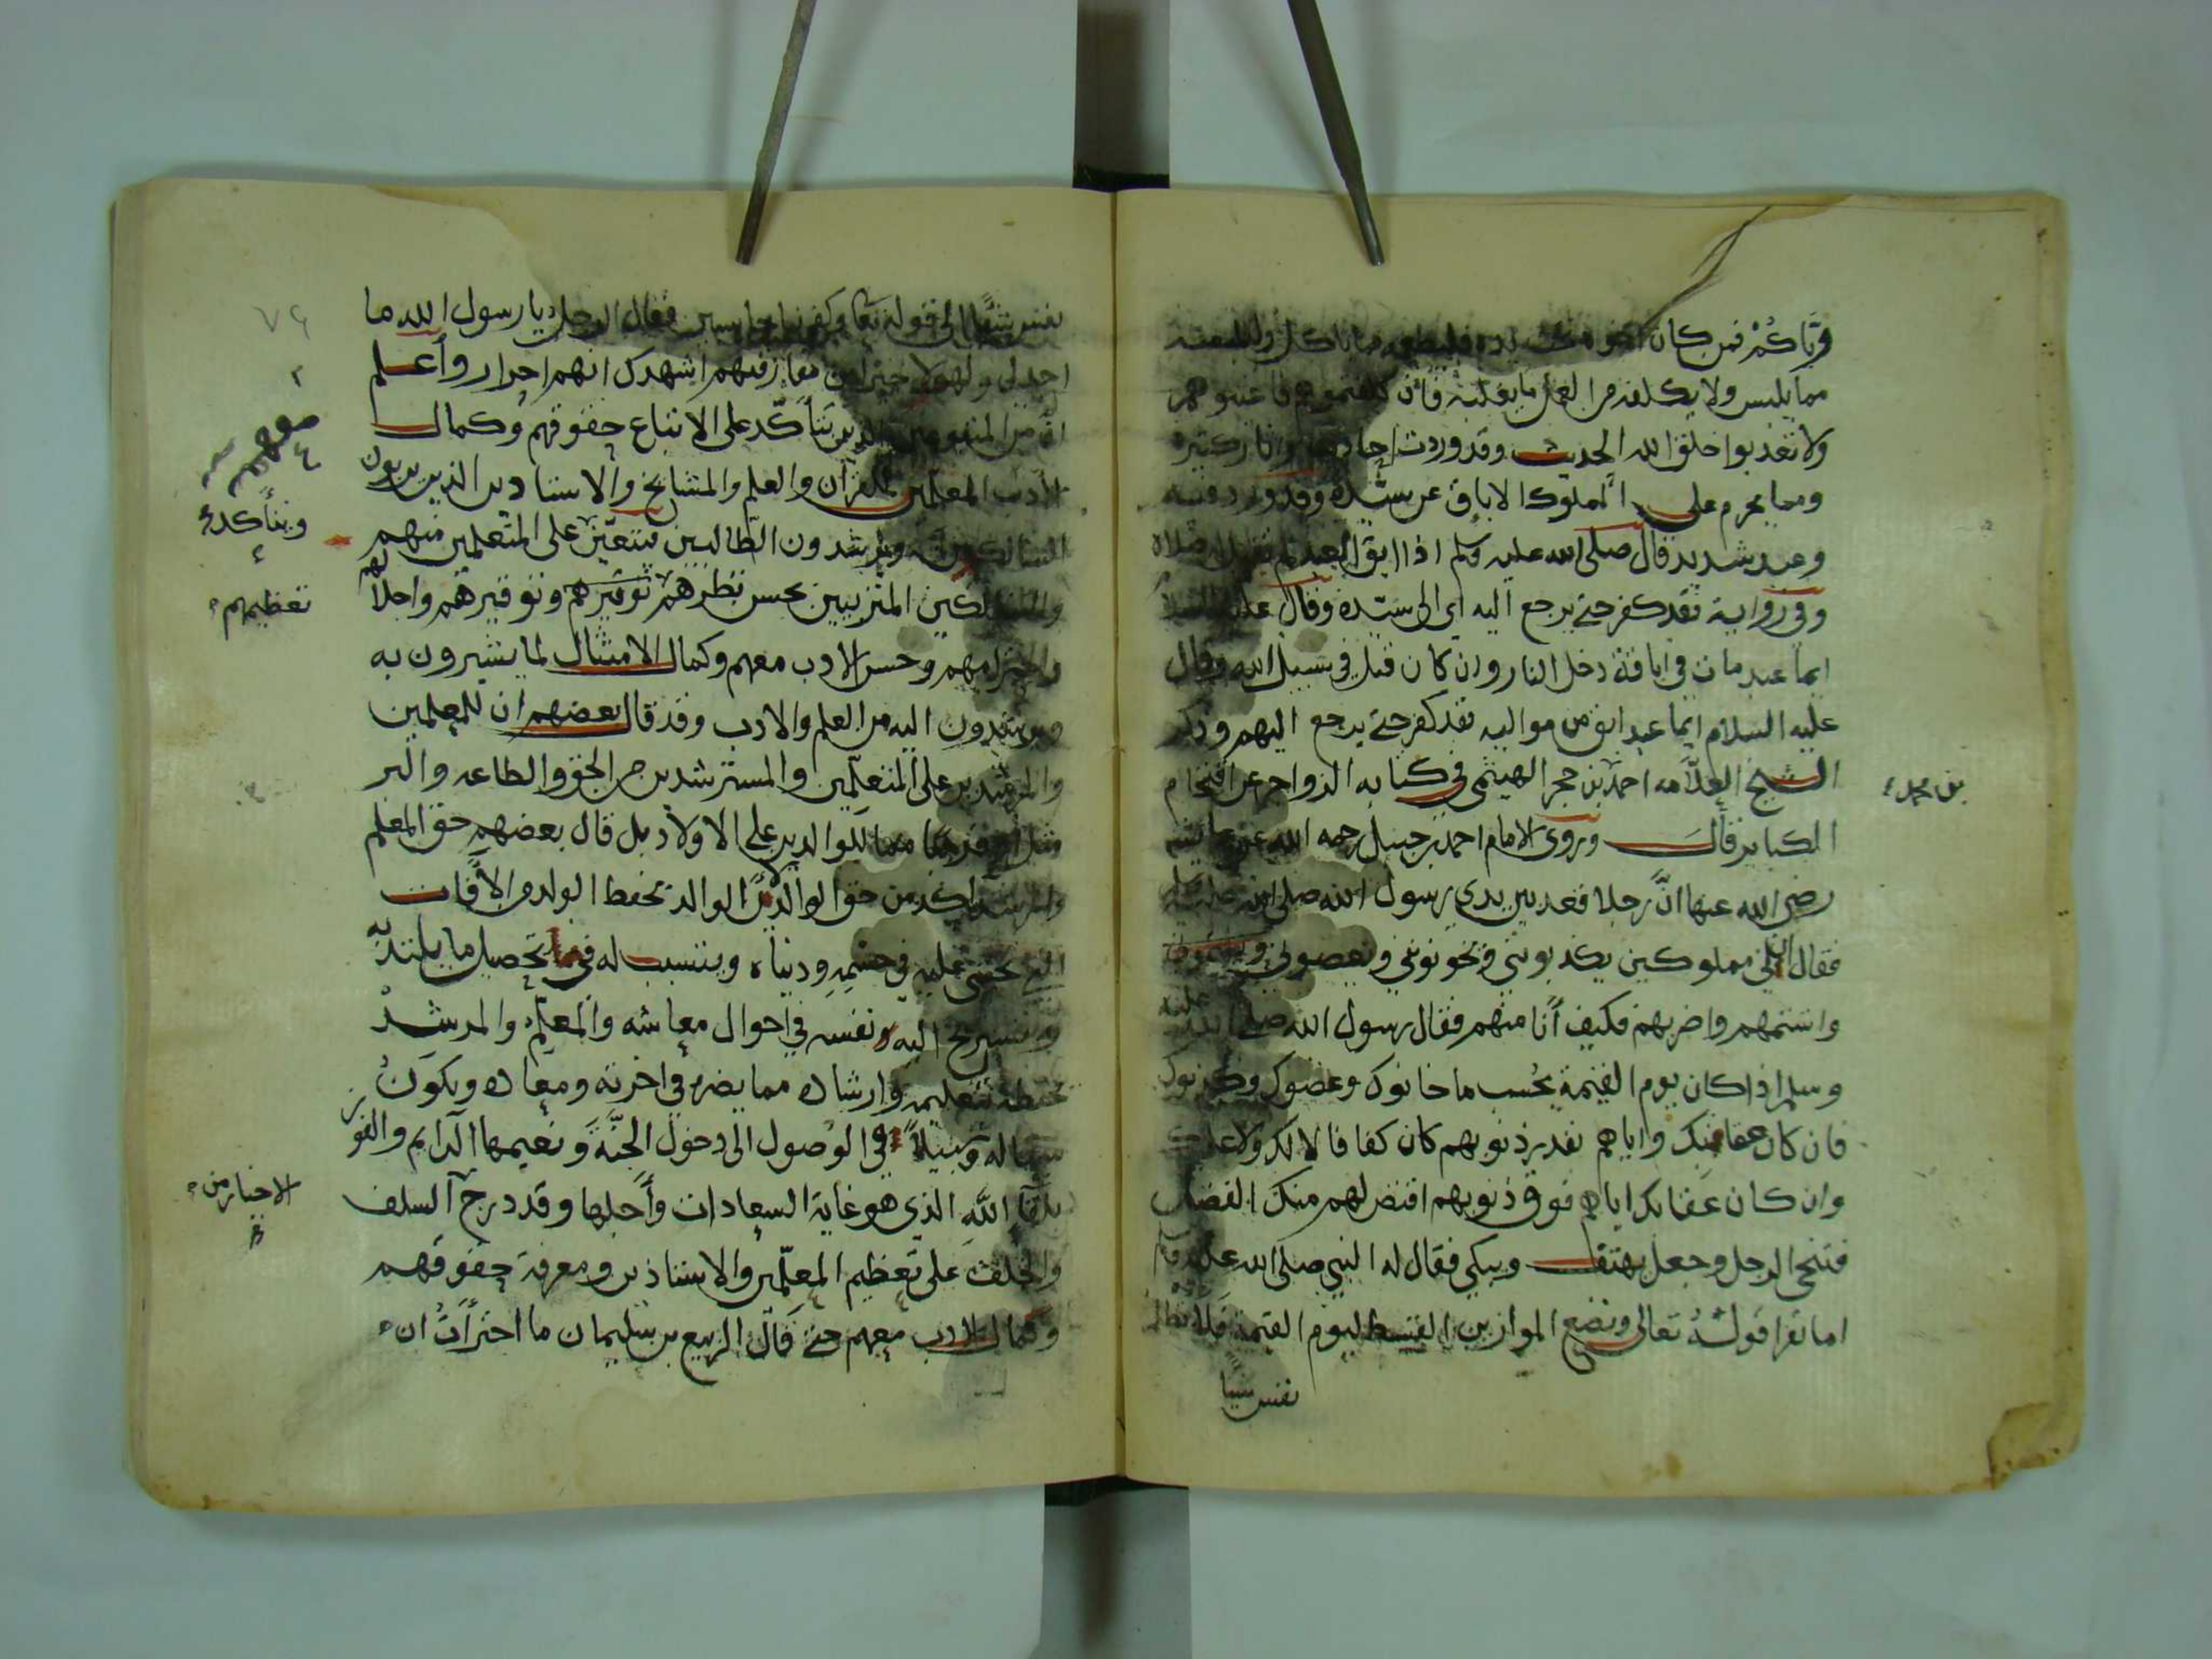 وياكم فمن كان اخو تحت يده فليطعمه مما ياكل وليلبسه
مما يلبس ولا يكلفه من العمل ما يغلبه فان كلفتموهم فاعينوهم
ولا تعذبوا خلق الله الحديث وقد وردت احاديث واثار كثيرة
ومما يحرم على المملوك الاباق عن سيده وقد ورد فيه
وعيد شديد قال صلى الله عليه وسلم اذا ابق العبد لم تقبل له صلاة
وفي رواية فقد كفر حتى يرجع اليه اي الى سيده وقال عليه السلام
ايما عبد مات في اباقة دخل النار وان كان قتل في سبيل الله وقال
عليه السلام ايما عبد ابق من مواليه فقد كفر حتى يرجع اليهم وذكر
الشيخ العلامه احمد بن حجر الهيثمي في كتابه الزواجر عن اقتحام
بن محمد
الكباير قال وروى الامام احمد بن حنبل رحمه الله عن عايشه
رضي الله عنها ان رجلا قعد بين يدي رسول الله صلى الله عليه وسلم
فقال ان لي مملوكين يكذبونني ويخونونني ويعصوني
واشتمهم واضربهم فكيف أنا منهم فقال رسول الله صلى الله عليه
وسلم اذا كان يوم القيمة يحسب ما خانوك وعصوك وكذبوك
فان كان عقابك واياهم بقدر ذنوبهم كان كفافا لا لك ولا عليك
وان كان عقابك اياهم فوق ذنوبهم اقتص لهم منك الفضل
فتنحى الرجل وجعل يهتف ويبكي فقال له النبي صلى الله عليه وسلم
اما تقرا قوله تعالى ونضع الموازين القسط ليوم القيمة فلا تظلم
نفس شيا
٧٦
نفس شيئا الى قوله تعا وكفى بنا حاسبين فقال الرجل يا رسول الله ما
اجد لي ولهولا خيرا من مفارقتهم اشهدك انهم احرار وأعلم
ان من المتبوعين الذين يتأكد على الاتباع حقوقهم وكمال
الأدب المعلمين للقرآن والعلم والمشايخ والاستادين الذين يربون
السالكين ويرشدون الطالبين فيتعين على المتعلمين منهم
ويتأكد
والسالكين المتربيين بحسن نظرهم توقيرهم وتوقيرهم واجلالهم
تعظيمهم
واحترامهم وحسن الادب معهم وكمال الامتثال لما يشيرون به
ويرشدون اليه من العلم والادب وقد قال بعضهم ان للمعلمين
والمرشدين على المتعلمين والمسترشدين من الحق والطاعه والبر
مثل او قريبا مما للوالدين على الاولاد بل قال بعضهم حق المعلم
والمرشد آكد من حق الوالدين لان الوالد يحفظ الولد من الآفات
التي تخشى عليه في جسمه ودنياه ويتسبب له في تحصيل ما يلتذ به
وتستريح اليه نفسه في احوال معاشه والمعلم والمرشد
يحفظه بتعليمه وارشاده مما يضره في اخرته ومعاده ويكون
سببا له وسبيلا في الوصول الى دخول الجنة ونعيمها الدايم والفوز
بلقا الله الذي هو غاية السعادات وأجلها وقد درج السلف
الاخيار من
والخلف على تعظيم المعلمين والاستاذين ومعرفة حقوقهم
وكمال الادب معهم حتى قال الربيع بن سليمان ما اجترأت ان